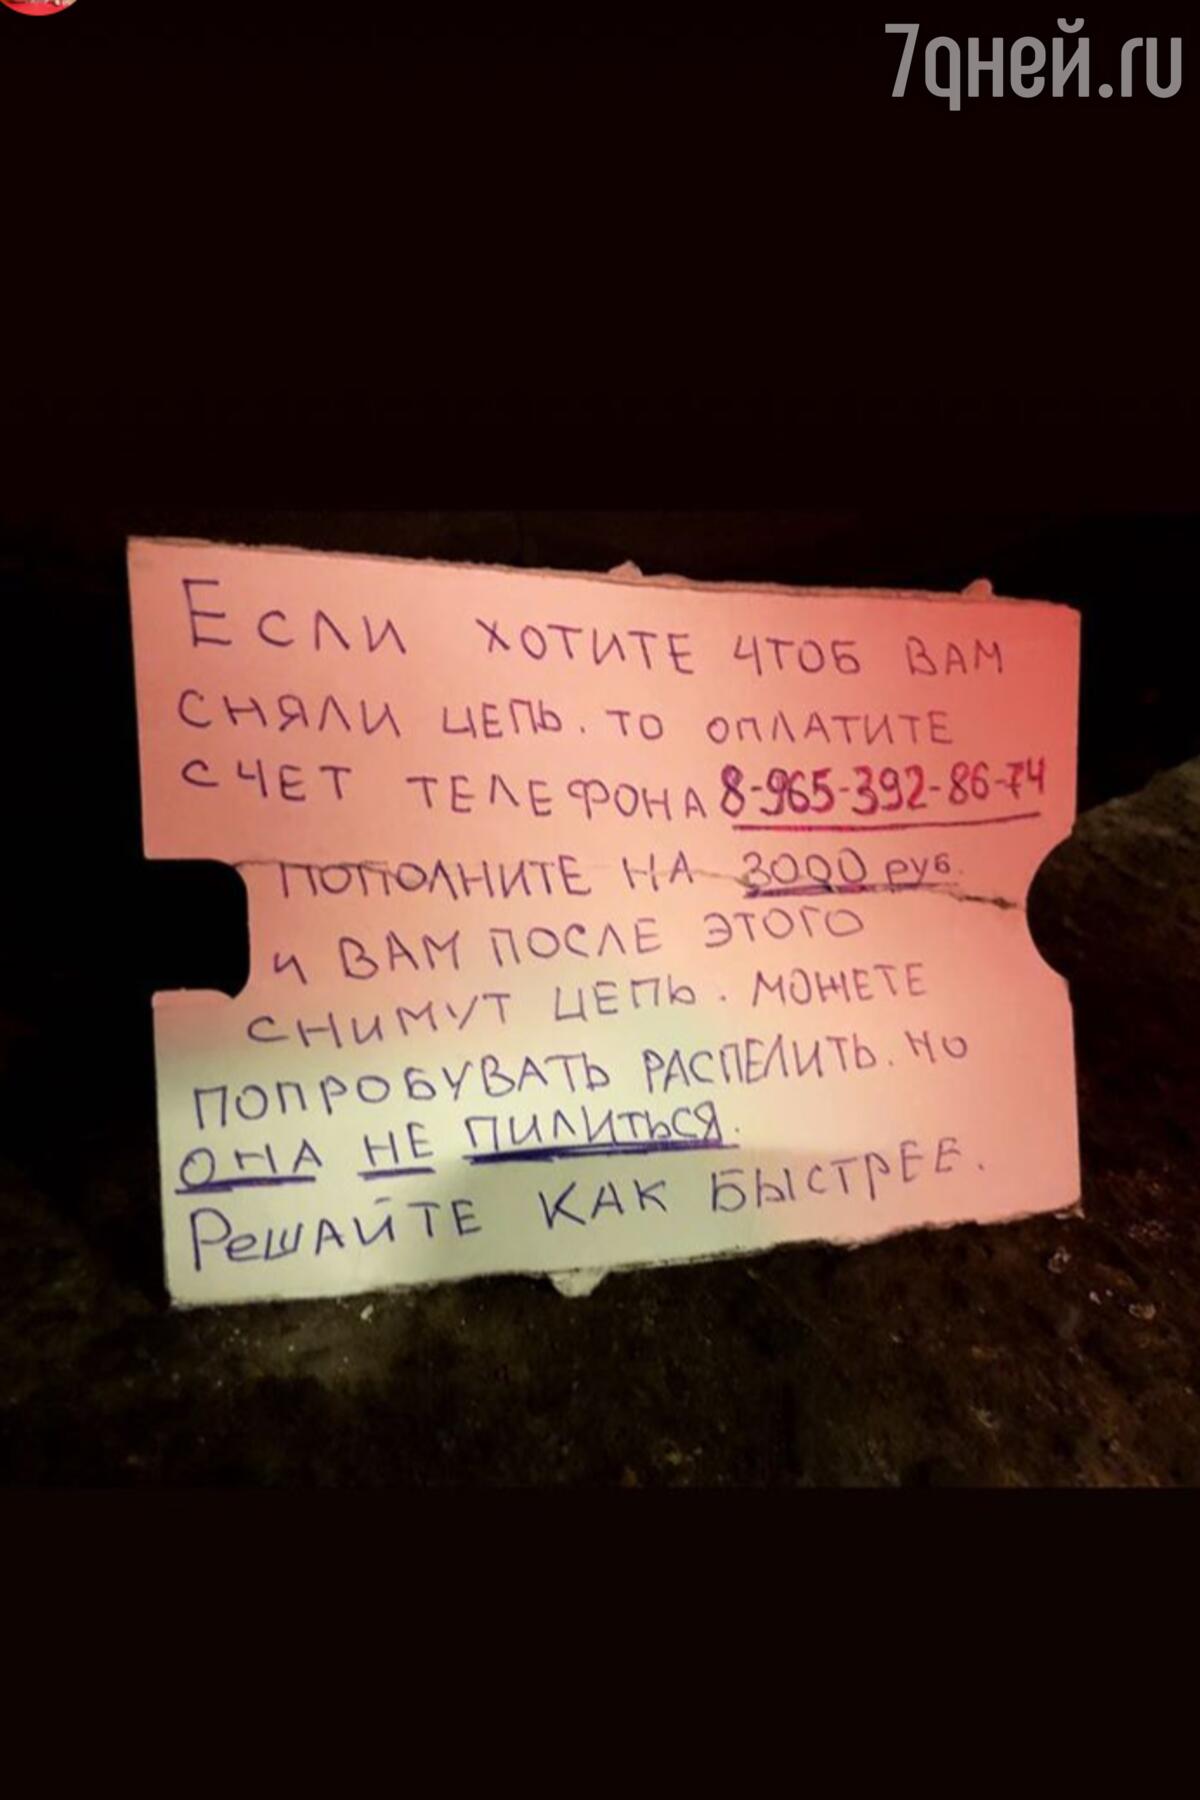 7дней.ru
Если хотите чтоб вам
сняли цепь. то оплатите
счет телефона 8-965-392-86-74
пополните на 3000 руб.
и вам после этого
снимут цепь. можете
попробувать распелить. но
она не пилиться.
Решайте как быстрее.